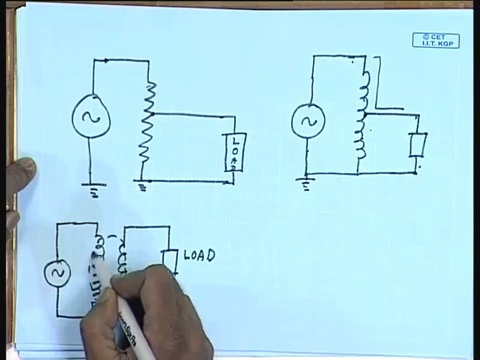 © CET
I.I.T. KGP
LOAD
LOAD